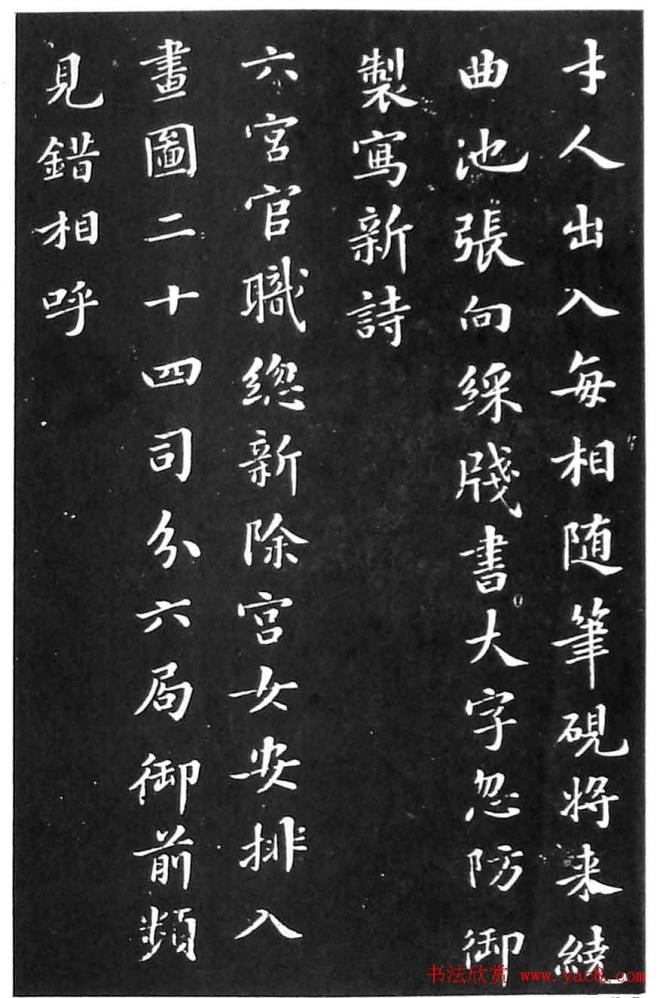 才人出入每相随筆硯将来繞
曲池張向綵牋書大字忽防御
製寫新詩
六宮官職總新除宮女安排入
畫圖二十四司分六局御前頻
見錯相呼
书法欣赏 www.yac8.com